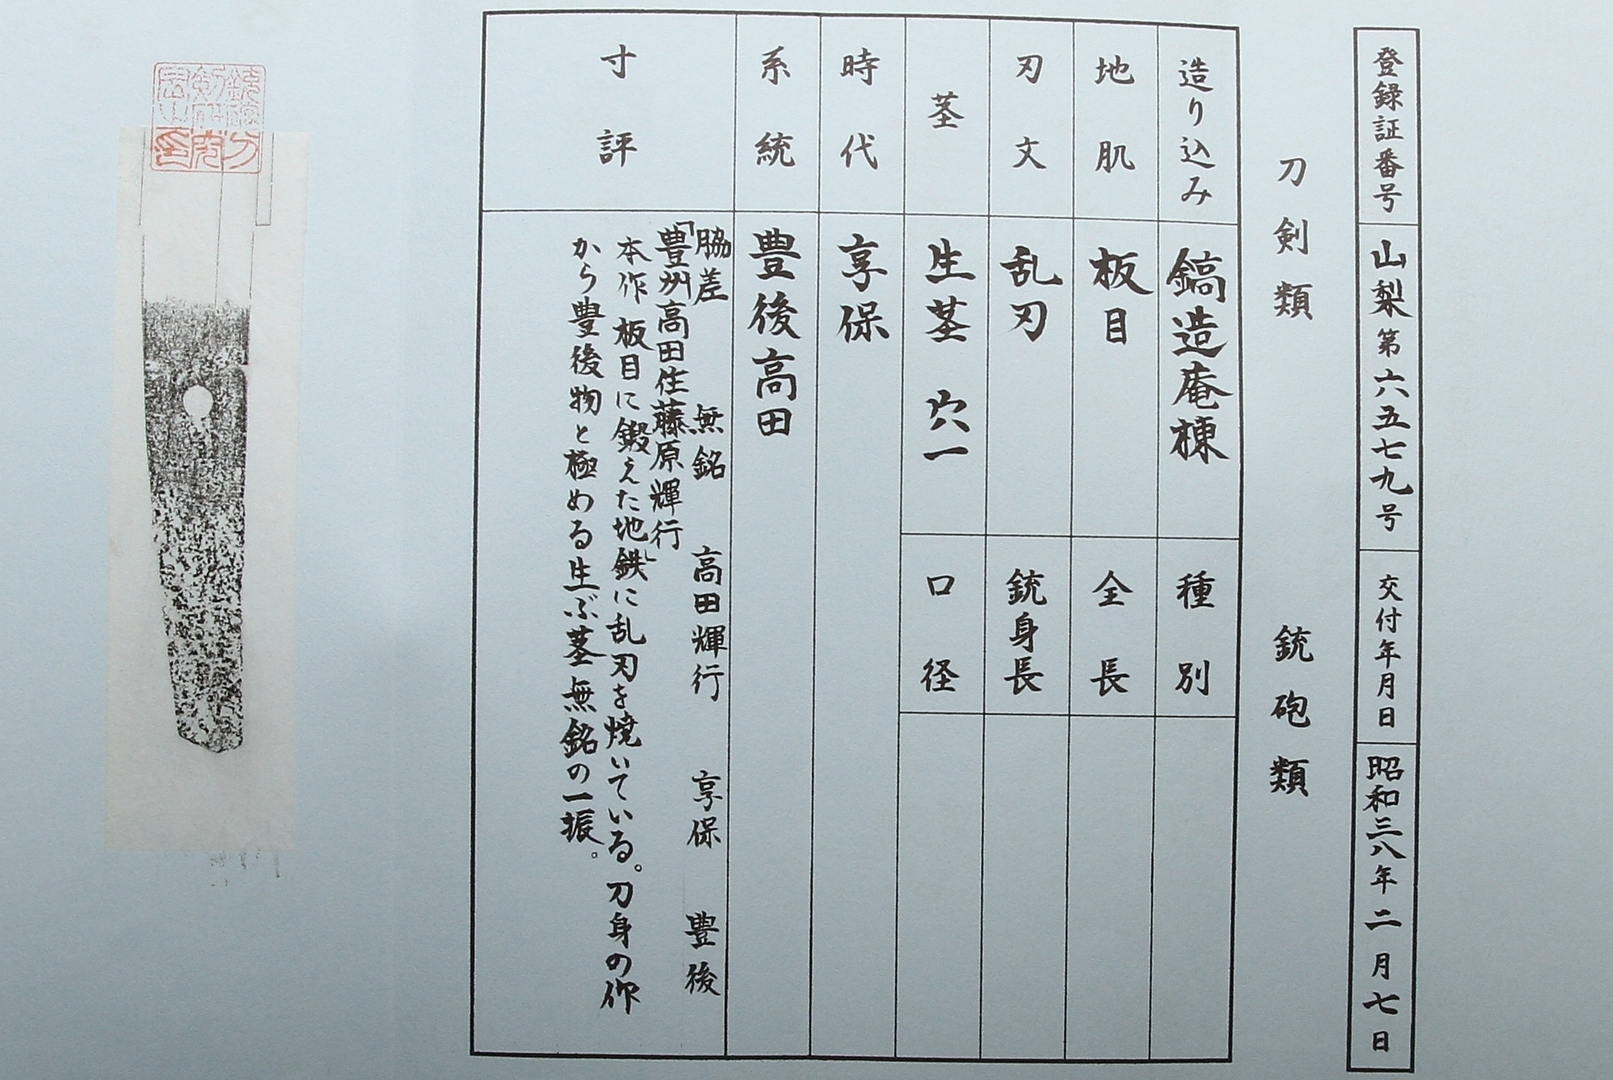 登録証番号 山梨第六五七九号 交付年月日 昭和三八年二月七日
刀剣類 銃砲類
造り込み 鎬造庵棟 種別
地肌 板目 全長
刃文 乱刃 銃身長
茎 生茎 穴一 口径
時代 享保
系統 豊後高田
寸評
脇差 無銘 高田輝行 享保 豊後
「豊州高田住藤原輝行」
本作 板目に鍛えた地鉄に乱刃を焼いている。刀身の作
から豊後物と極める生ぶ茎無銘の一振。